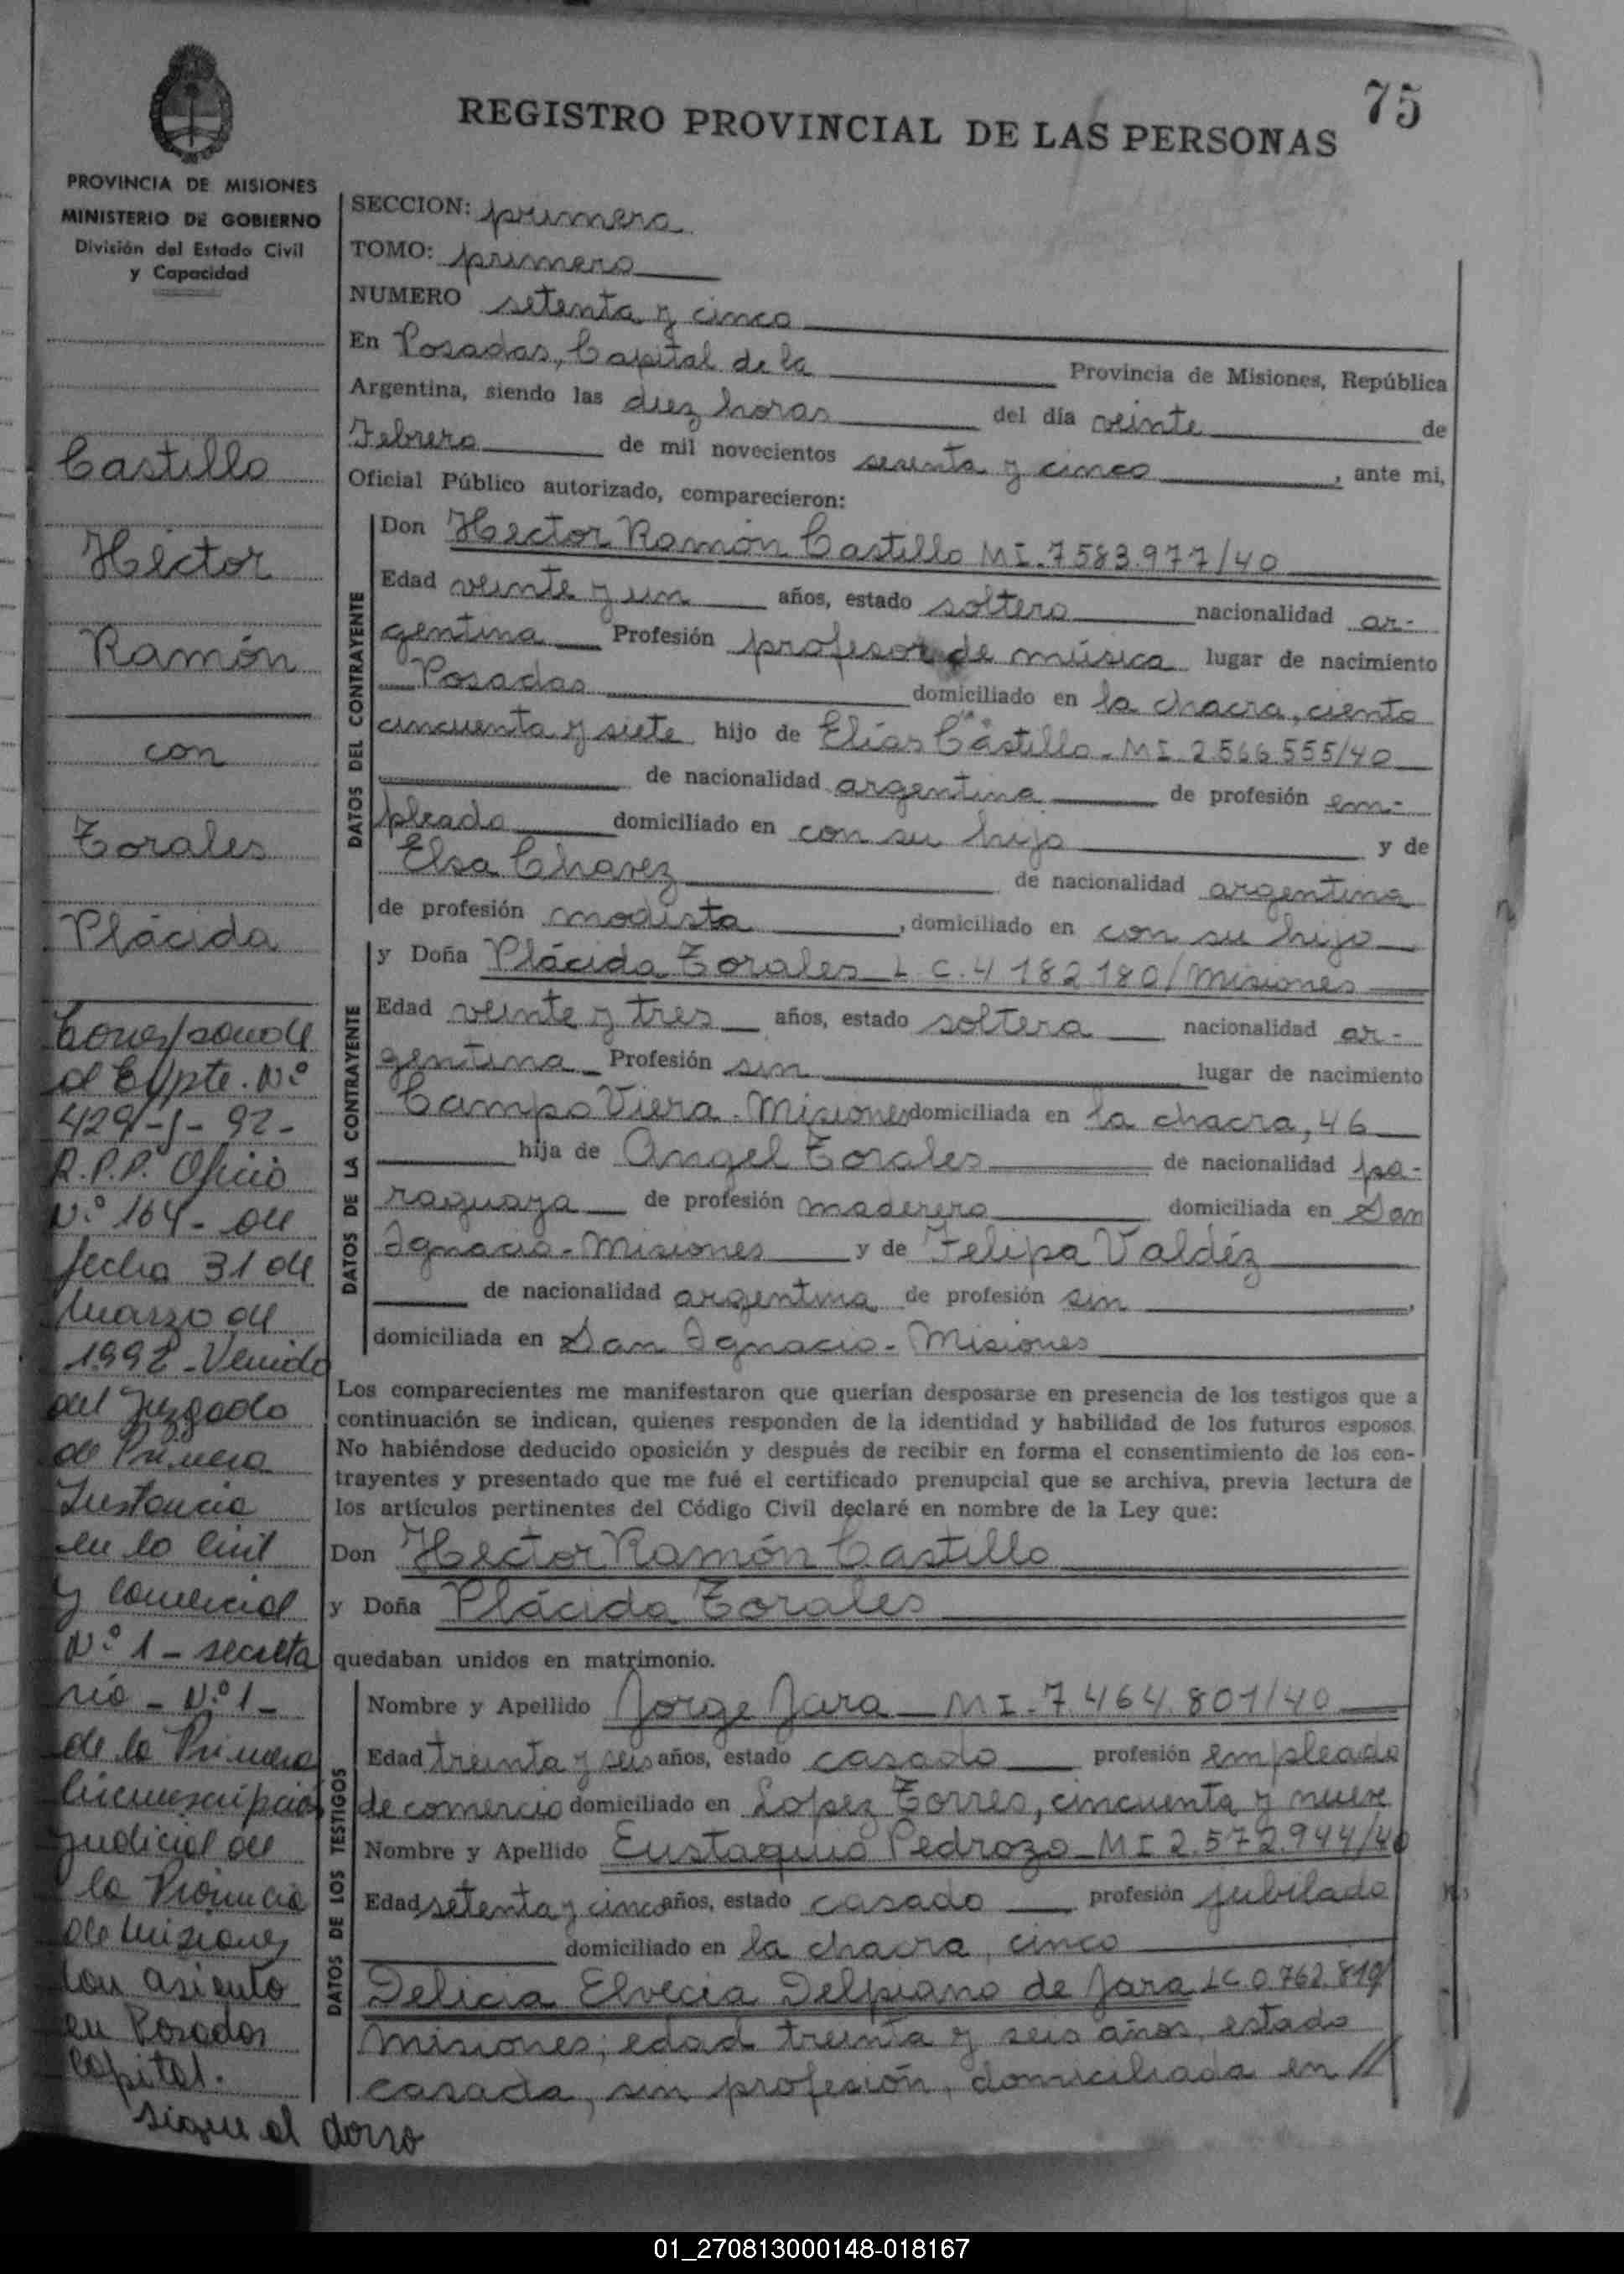 75
REGISTRO PROVINCIAL DE LAS PERSONAS
PROVINCIA DE MISIONES
MINISTERIO DE GOBIERNO
División del Estado Civil
y Capacidad
Castillo
Héctor
Ramón
con
Torales
Plácida
Corresponde
al Expte. Nº
429-J-92-
R.P.P. Oficio
Nº 164- de
fecha 31 de
Marzo de
1992-Venido
del Juzgado
de Primera
Instancia
en lo Civil
y Comercial
Nº 1 - secreta
ria - Nº 1 -
de la Primera
Circunscripción
Judicial de
la Provincia
de Misiones
con asiento
en Posadas
Capital.
sigue al dorso
SECCION: primera
TOMO: primero
NUMERO setenta y cinco
En Posadas, Capital de la Provincia de Misiones, República
Argentina, siendo las diez horas del día veinte de
Febrero de mil novecientos sesenta y cinco, ante mi,
Oficial Público autorizado, comparecieron:
DATOS DEL CONTRAYENTE
Don Héctor Ramón Castillo MI.7583.977/40
Edad veinte y un años, estado soltero nacionalidad ar-
gentina Profesión profesor de música lugar de nacimiento
Posadas domiciliado en la chacra, ciento
cincuenta y siete hijo de Elías Castillo - MI 2.566.555/40
de nacionalidad argentina de profesión em-
pleado domiciliado en con su hijo y de
Elsa Chavez de nacionalidad argentina
de profesión modista, domiciliado en con su hijo
DATOS DE LA CONTRAYENTE
y Doña Plácida Torales L C. 4 182 180/Misiones
Edad veinte y tres años, estado soltera nacionalidad ar-
gentina Profesión sin lugar de nacimiento
Campo Viera - Misiones domiciliada en la chacra, 46
hija de Angel Torales de nacionalidad pa-
raguaya de profesión maderero domiciliada en San
Ignacio - Misiones y de Felipa Valdéz
de nacionalidad argentina de profesión sin,
domiciliada en San Ignacio - Misiones
Los comparecientes me manifestaron que querían desposarse en presencia de los testigos que a
continuación se indican, quienes responden de la identidad y habilidad de los futuros esposos.
No habiéndose deducido oposición y después de recibir en forma el consentimiento de los con-
trayentes y presentado que me fué el certificado prenupcial que se archiva, previa lectura de
los artículos pertinentes del Código Civil declaré en nombre de la Ley que:
Don Héctor Ramón Castillo
y Doña Plácida Torales
quedaban unidos en matrimonio.
DATOS DE LOS TESTIGOS
Nombre y Apellido Jorge Jara - MI - 7.464.801/40
Edad treinta y seis años, estado casado profesión empleado
de comercio domiciliado en Lopez Torres, cincuenta y nueve
Nombre y Apellido Eustaquio Pedrozo - MI 2.572.944/40
Edad setenta y cinco años, estado casado profesión jubilado
domiciliado en la chacra, cinco
Delicia Elvecia Delpiano de Jara LC 0.762.819/
Misiones; edad treinta y seis años, estado
casada, sin profesión, domiciliada en //
01_270813000148-018167